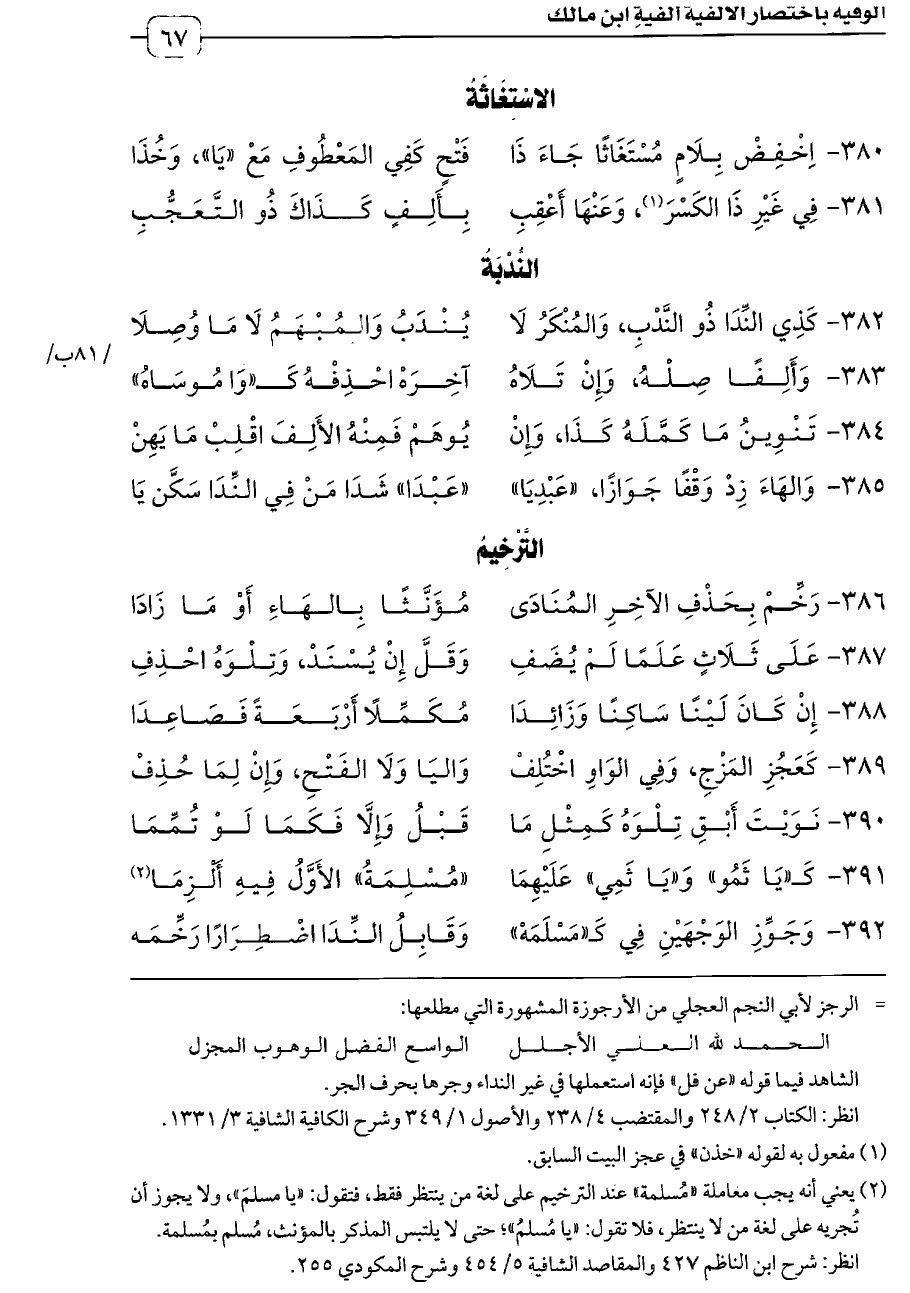 الوفية باختصار الألفية ألفية ابن مالك
٦٧
الاسْتغَاثَةُ
٣٨٠- اِخْفِضْ بِلَامٍ مُسْتَغَاثًا جَاءَ ذَا فَتْحٍ كَفِي المَعْطُوفِ مَعْ «يَا»، وَخُذَا
٣٨١- فِي غَيْرِ ذَا الكَسْرَ(١)، وَعَنْهَا أَعْقِبِ بِأَلِفٍ كَذَاكَ ذُو التَّعَجُّبِ
النُّدْبَةُ
٣٨٢- كَذِي النِّدَا ذُو النَّدْبِ، وَالمُنْكَرُ لَا يُنْدَبُ وَالمُبْهَمُ لَا مَا وُصِلَا
/٨١ب/
٣٨٣- وَأَلِفًا صِلْهُ، وَإِنْ تَلَاهُ آخِرَهُ احْذِفْهُ كَـ«وَا مُوسَاهُ»
٣٨٤- تَنْوِينُ مَا كَمَّلَهُ كَذَا، وَإِنْ يُوهَمْ فَمِنْهُ الأَلِفَ اقْلِبْ مَا يَهِنْ
٣٨٥- وَالهَاءَ زِدْ وَقْفًا جَوَازًا، «عَبْدِيَا» «عَبْدَا» شَدَا مَنْ فِي النِّدَا سَكَّن يَا
التَّرْخيمُ
٣٨٦- رَخِّمْ بِحَذْفِ الآخِرِ المُنَادَى مُؤَنَّثًا بِالهَاءِ أَوْ مَا زَادَا
٣٨٧- عَلَى ثَلَاثٍ عَلَمًا لَمْ يُضَفِ وَقَلَّ إِنْ يُسْنَدْ، وَتِلْوَهُ احْذِفِ
٣٨٨- إِنْ كَانَ لَيْنًا سَاكِنًا وَزَائِدَا مُكَمِّلًا أَرْبَعَةً فَصَاعِدَا
٣٨٩- كَعَجُزِ المَزْجِ، وَفِي الوَاوِ اخْتُلِفْ وَاليَا وَلَا الفَتْحِ، وَإِنْ لِمَا حُذِفْ
٣٩٠- نَوَيْتَ أَبْقِ تِلْوَهُ كَمِثْلِ مَا قَبْلُ وَإِلَّا فَكَمَا لَوْ تُمِّمَا
٣٩١- كَـ«يَا ثَمُو» وَ«يَا ثَمِي» عَلَيْهِمَا «مُسْلِمَةُ» الأَوَّلُ فِيهِ أُلْزِمَا(٢)
٣٩٢- وَجَوِّزِ الوَجْهَيْنِ فِي كَـ«مَسْلَمَهْ» وَقَابِلُ النِّدَا اضْطِرَارًا رَخَّمَه
= الرجز لأبي النجم العجلي من الأرجوزة المشهورة التي مطلعها:
الحمد لله العلي الأجلل الواسع الفضل الوهوب المجزل
الشاهد فيما قوله «عن فل» فإنه استعملها في غير النداء وجرها بحرف الجر.
انظر: الكتاب ٢/ ٢٤٨ والمقتضب ٤/ ٢٣٨ والأصول ١/ ٣٤٩ وشرح الكافية الشافية ٣/ ١٣٣١.
(١) مفعول به لقوله «خذن» في عجز البيت السابق.
(٢) يعني أنه يجب معاملة «مُسلمة» عند الترخيم على لغة من ينتظر فقط، فتقول: «يا مسلمَ»، ولا يجوز أن
تُجريه على لغة من لا ينتظر، فلا تقول: «يا مُسلمُ»؛ حتى لا يلتبس المذكر بالمؤنث، مُسلم بمُسلمة.
انظر: شرح ابن الناظم ٤٢٧ والمقاصد الشافية ٥/ ٤٥٤ وشرح المكودي ٢٥٥.